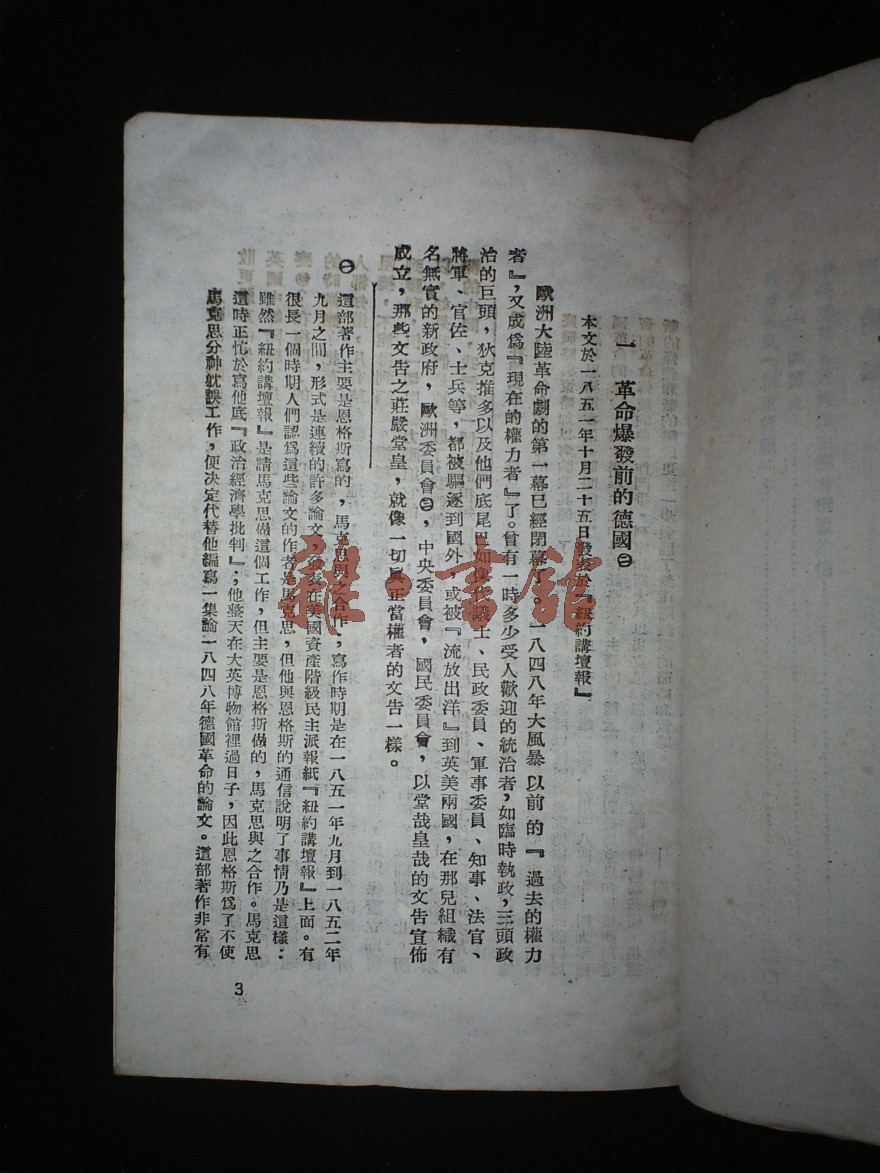 一 革命爆發前的德國㊀
本文於一八五一年十月二十五日發表於『紐約講壇報』
歐洲大陸革命劇的第一幕已經閉幕了。一八四八年大風暴以前的『過去的權力
者』，又成爲『現在的權力者』了。曾有一時多少受人歡迎的統治者，如臨時執政，三頭政
治的巨頭，狄克推多以及他們底尾巴如像代議士、民政委員、軍事委員、知事、法官、
將軍、官佐、士兵等，都被驅逐到國外，或被『流放出洋』到英美兩國，在那兒組織有
名無實的新政府，歐洲委員會㊁，中央委員會，國民委員會，以堂哉皇哉的文告宣佈
成立，那些文告之莊嚴堂皇，就像一切眞正當權者的文告一樣。
㊀ 這部著作主要是恩格斯寫的，馬克思與之合作，寫作時期是在一八五一年九月到一八五二年
九月之間，形式是連續的許多論文，發表在美國資產階級民主派報紙『紐約講壇報』上面。有
很長一個時期人們認爲這些論文的作者是馬克思，但他與恩格斯的通信說明了事情乃是這樣：
雖然『紐約講壇報』是請馬克思做這個工作，但主要是恩格斯做的，馬克思與之合作。馬克思
這時正忙於寫他底『政治經濟學批判』；他整天在大英博物館裡過日子，因此恩格斯爲了不使
馬克思分神躭誤工作，便决定代替他編寫一集論一八四八年德國革命的論文。這部著作非常有
3
雜·書館